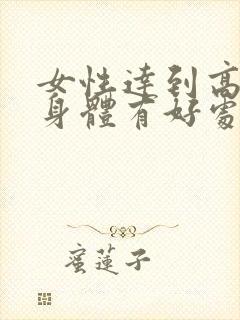 女性達到高
身體有好處
蜜蓮子